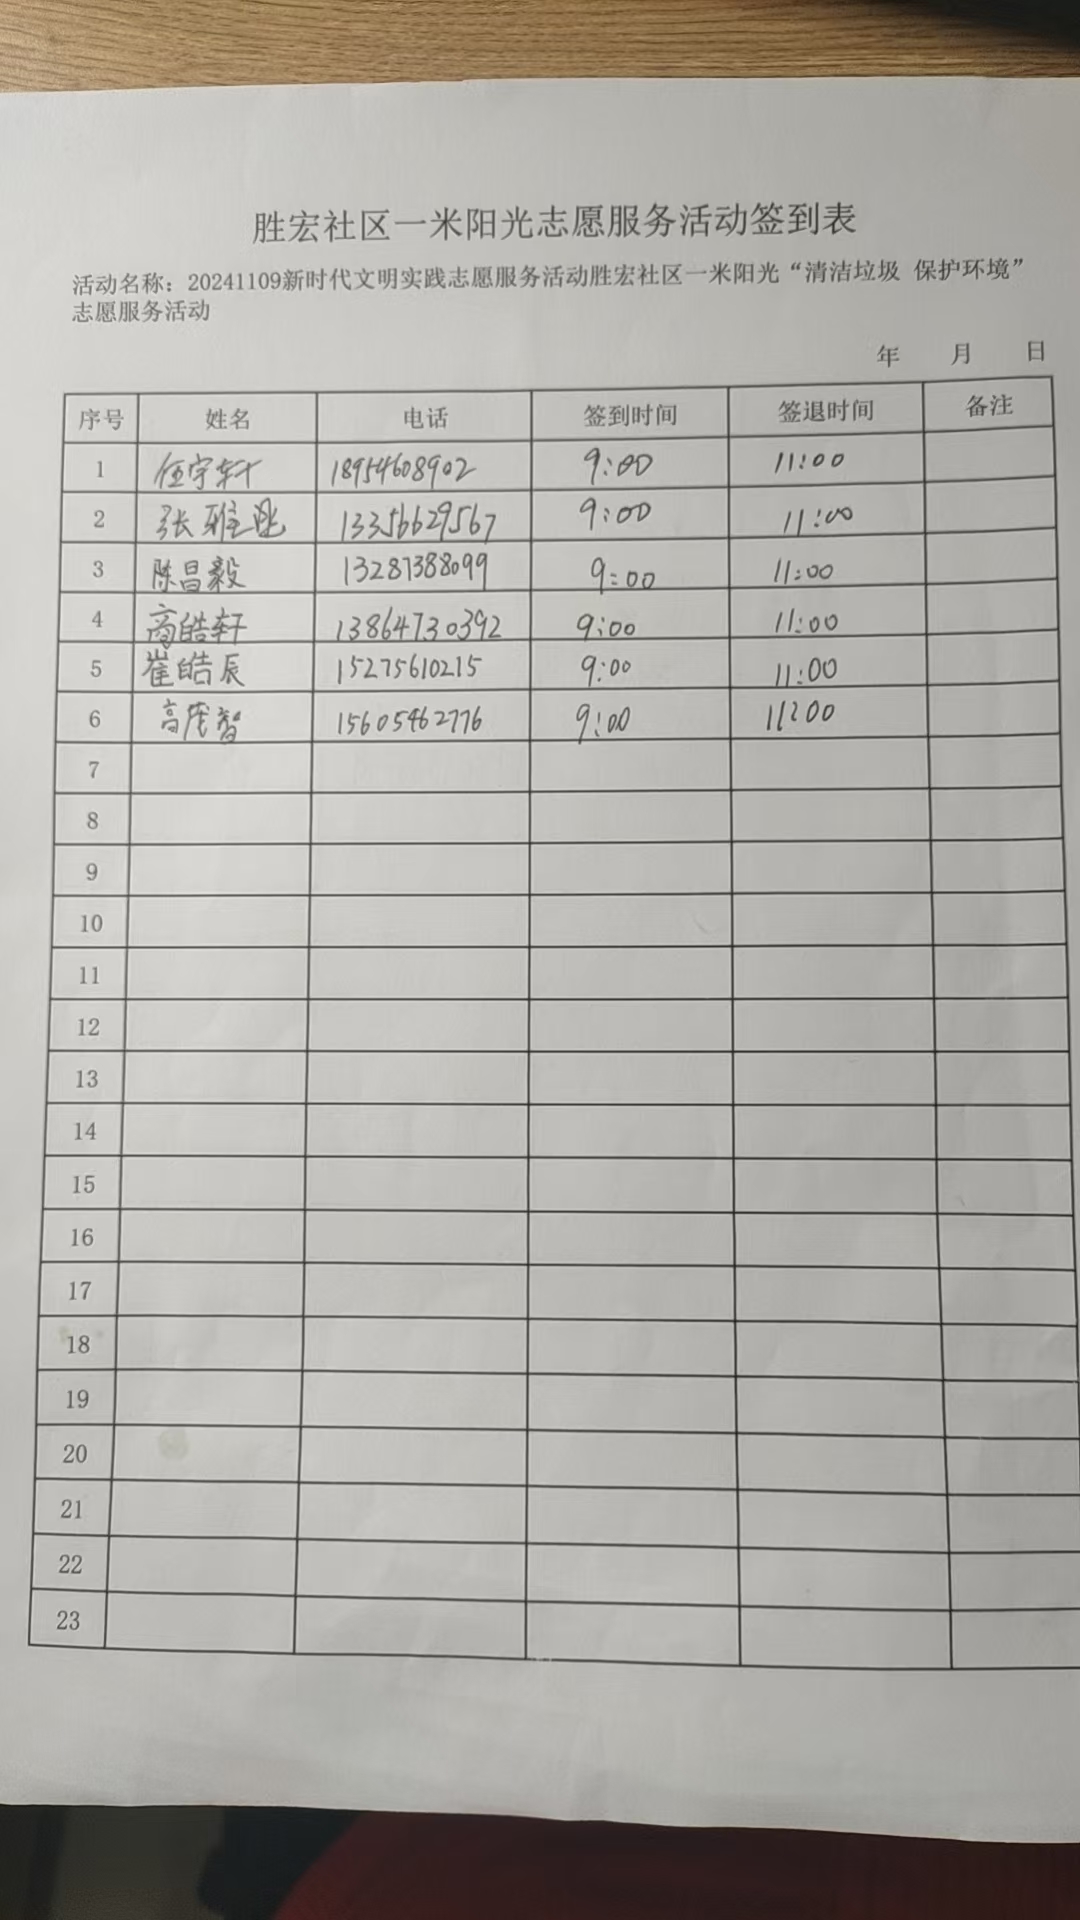 胜宏社区一米阳光志愿服务活动签到表
活动名称：20241109新时代文明实践志愿服务活动胜宏社区一米阳光“清洁垃圾 保护环境”
志愿服务活动
年 月 日
序号 姓名 电话 签到时间 签退时间 备注
1 任宇轩 18954608902 9:00 11:00
2 张雅 13356629567 9:00 11:00
3 陈昌毅 13287388099 9:00 11:00
4 高皓轩 13864730392 9:00 11:00
5 崔皓辰 15275610215 9:00 11:00
6 高 智 15605462776 9:00 11:00
7
8
9
10
11
12
13
14
15
16
17
18
19
20
21
22
23